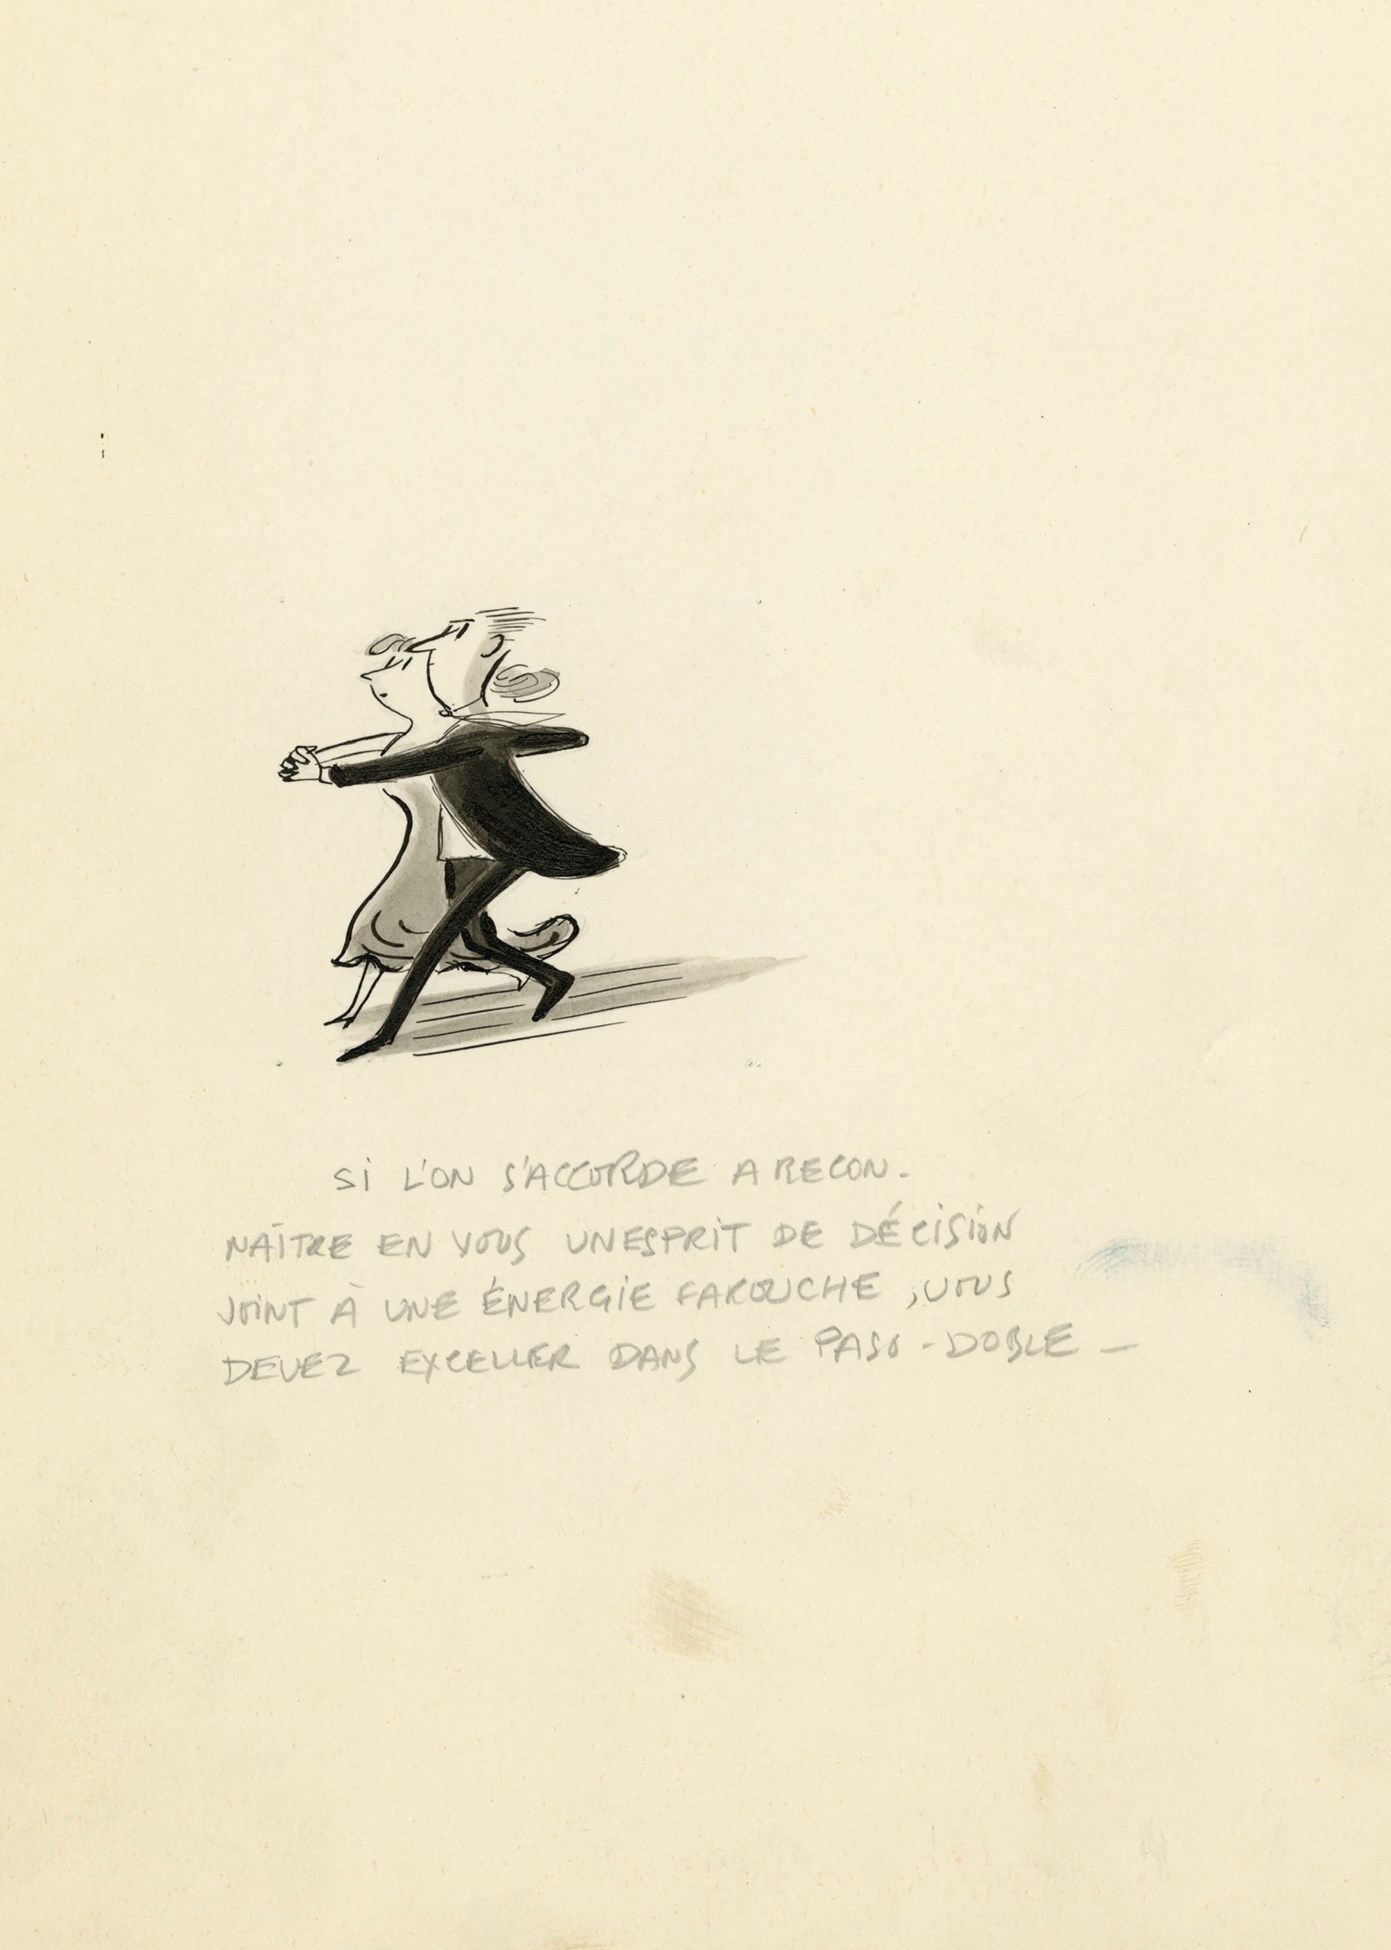 SI L'ON S'ACCORDE A RECON-
NAÎTRE EN VOUS UN ESPRIT DE DÉCISION
JOINT À UNE ÉNERGIE FAROUCHE, VOUS
DEVEZ EXCELLER DANS LE PASO-DOBLE -